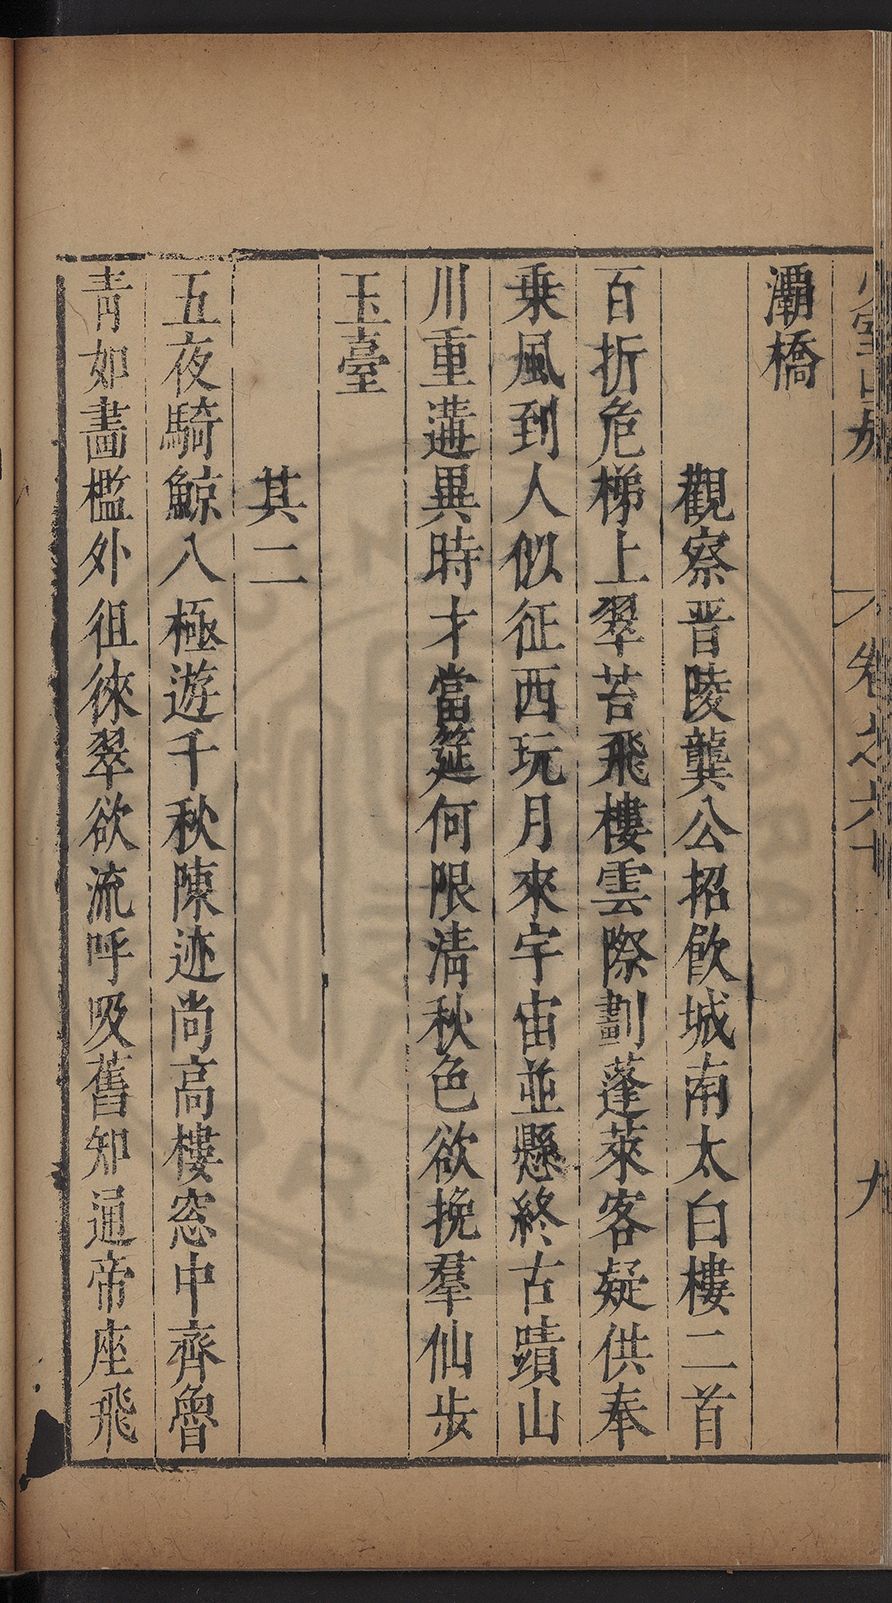 卷之六十
九
灞橋
觀察晋陵龔公招飲城南太白樓二首
百折危梯上翠苔飛樓雲際劃蓬萊客疑供奉
乘風到人似征西玩月來宇宙並懸終古蹟山
川重遘異時才當筵何限清秋色欲挽羣仙步
玉臺
其二
五夜騎鯨八極遊千秋陳迹尚高樓窓中齊魯
青如畵檻外徂徠翠欲流呼吸舊知通帝座飛